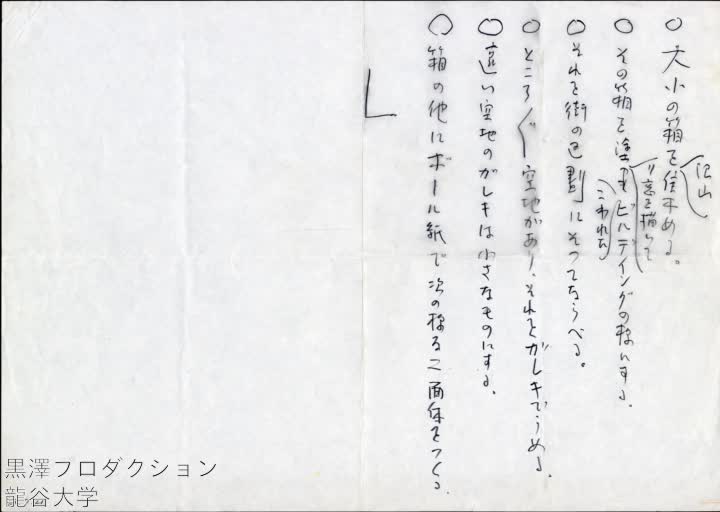 ○ 大小の箱を集める。
沢山
○ その箱を塗り ビルディングの様にする。
窓を描いて
こわれた
○ それを街の区劃にそってならべる。
○ ところ〴〵空地があり、それをガレキでうめる。
○ 遠い空地のガレキは小さなものにする。
○ 箱の他にボール紙で次の様な二面体をつくる。
黒澤プロダクション
龍谷大学